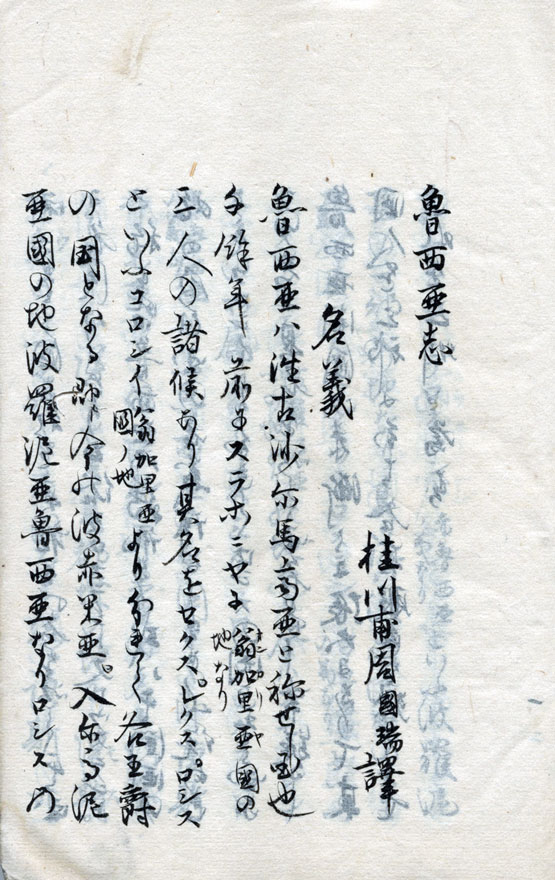 魯西亜志
桂川甫周國瑞譯
名義
魯西亜ハ往古沙尓馬高亜と称せし国也
千餘年前にスラホニヤに翁加里亜國の地なり
三人の諸侯あり其名をセクス。レクス。ロシス
といふコロシイ翁加里亜國ノ地より分れて各王爵
の国となる即今の波赤米亜。入尓馬泥
亜國の地波羅泥亜魯西亜なりロシスの